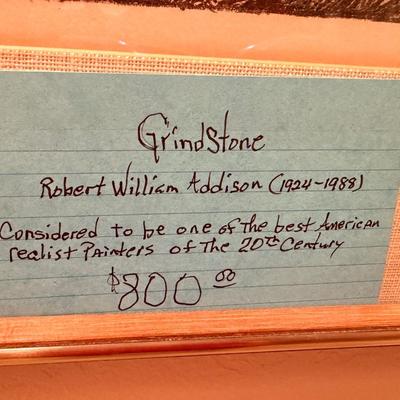 GrindStone
Robert William Addison (1924-1988)
Considered to be one of the best American
realist Painters of The 20th Century
$800.00